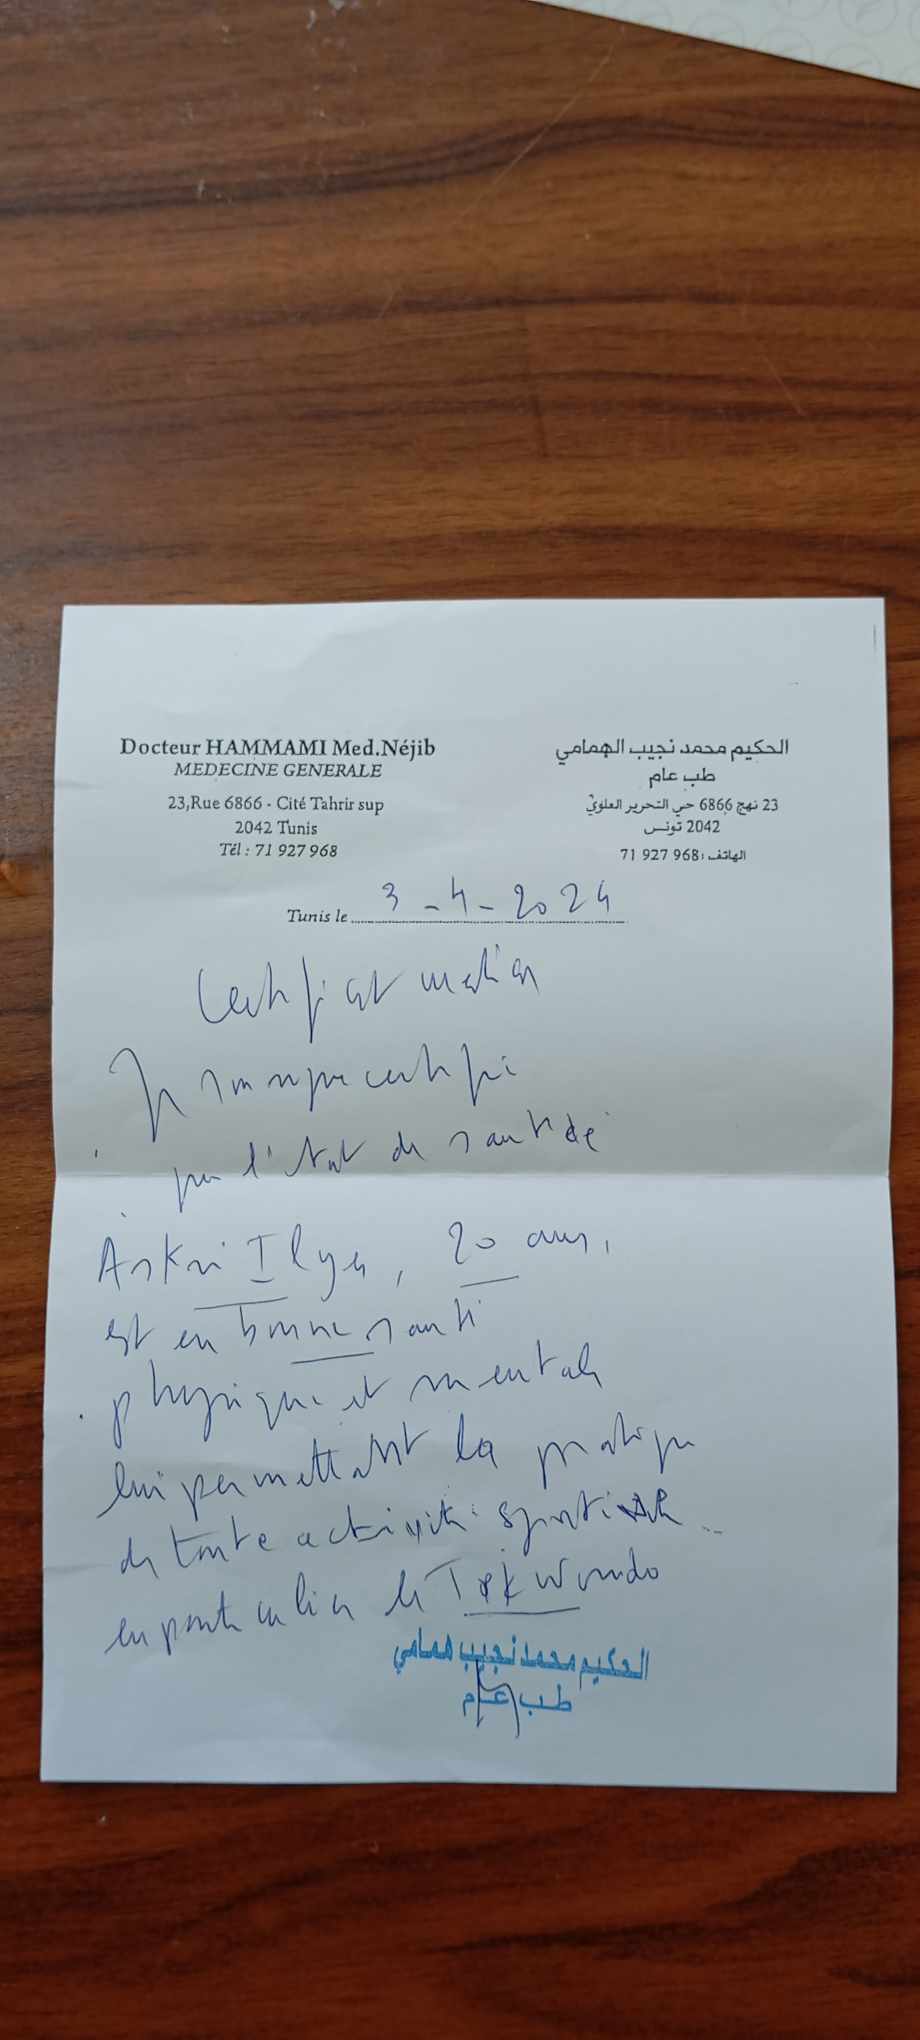 Docteur HAMMAMI Med.Néjib
MEDECINE GENERALE
23,Rue 6866 - Cité Tahrir sup
2042 Tunis
Tél : 71 927 968
الحكيم محمد نجيب الهمامي
طب عام
23 نهج 6866 حي التحرير العلوي
2042 تونس
الهاتف: 968 927 71
Tunis le 3-4-2024
Certificat medical
Je certifie
que l'état de santé de
Askri Ilyes, 20 ans,
est en bonne santé
physique et mentale
lui permettant la pratique
de toute activité sportive
en particulier le Tekwondo
الحكيم محمد نجيب همامي
طب عام